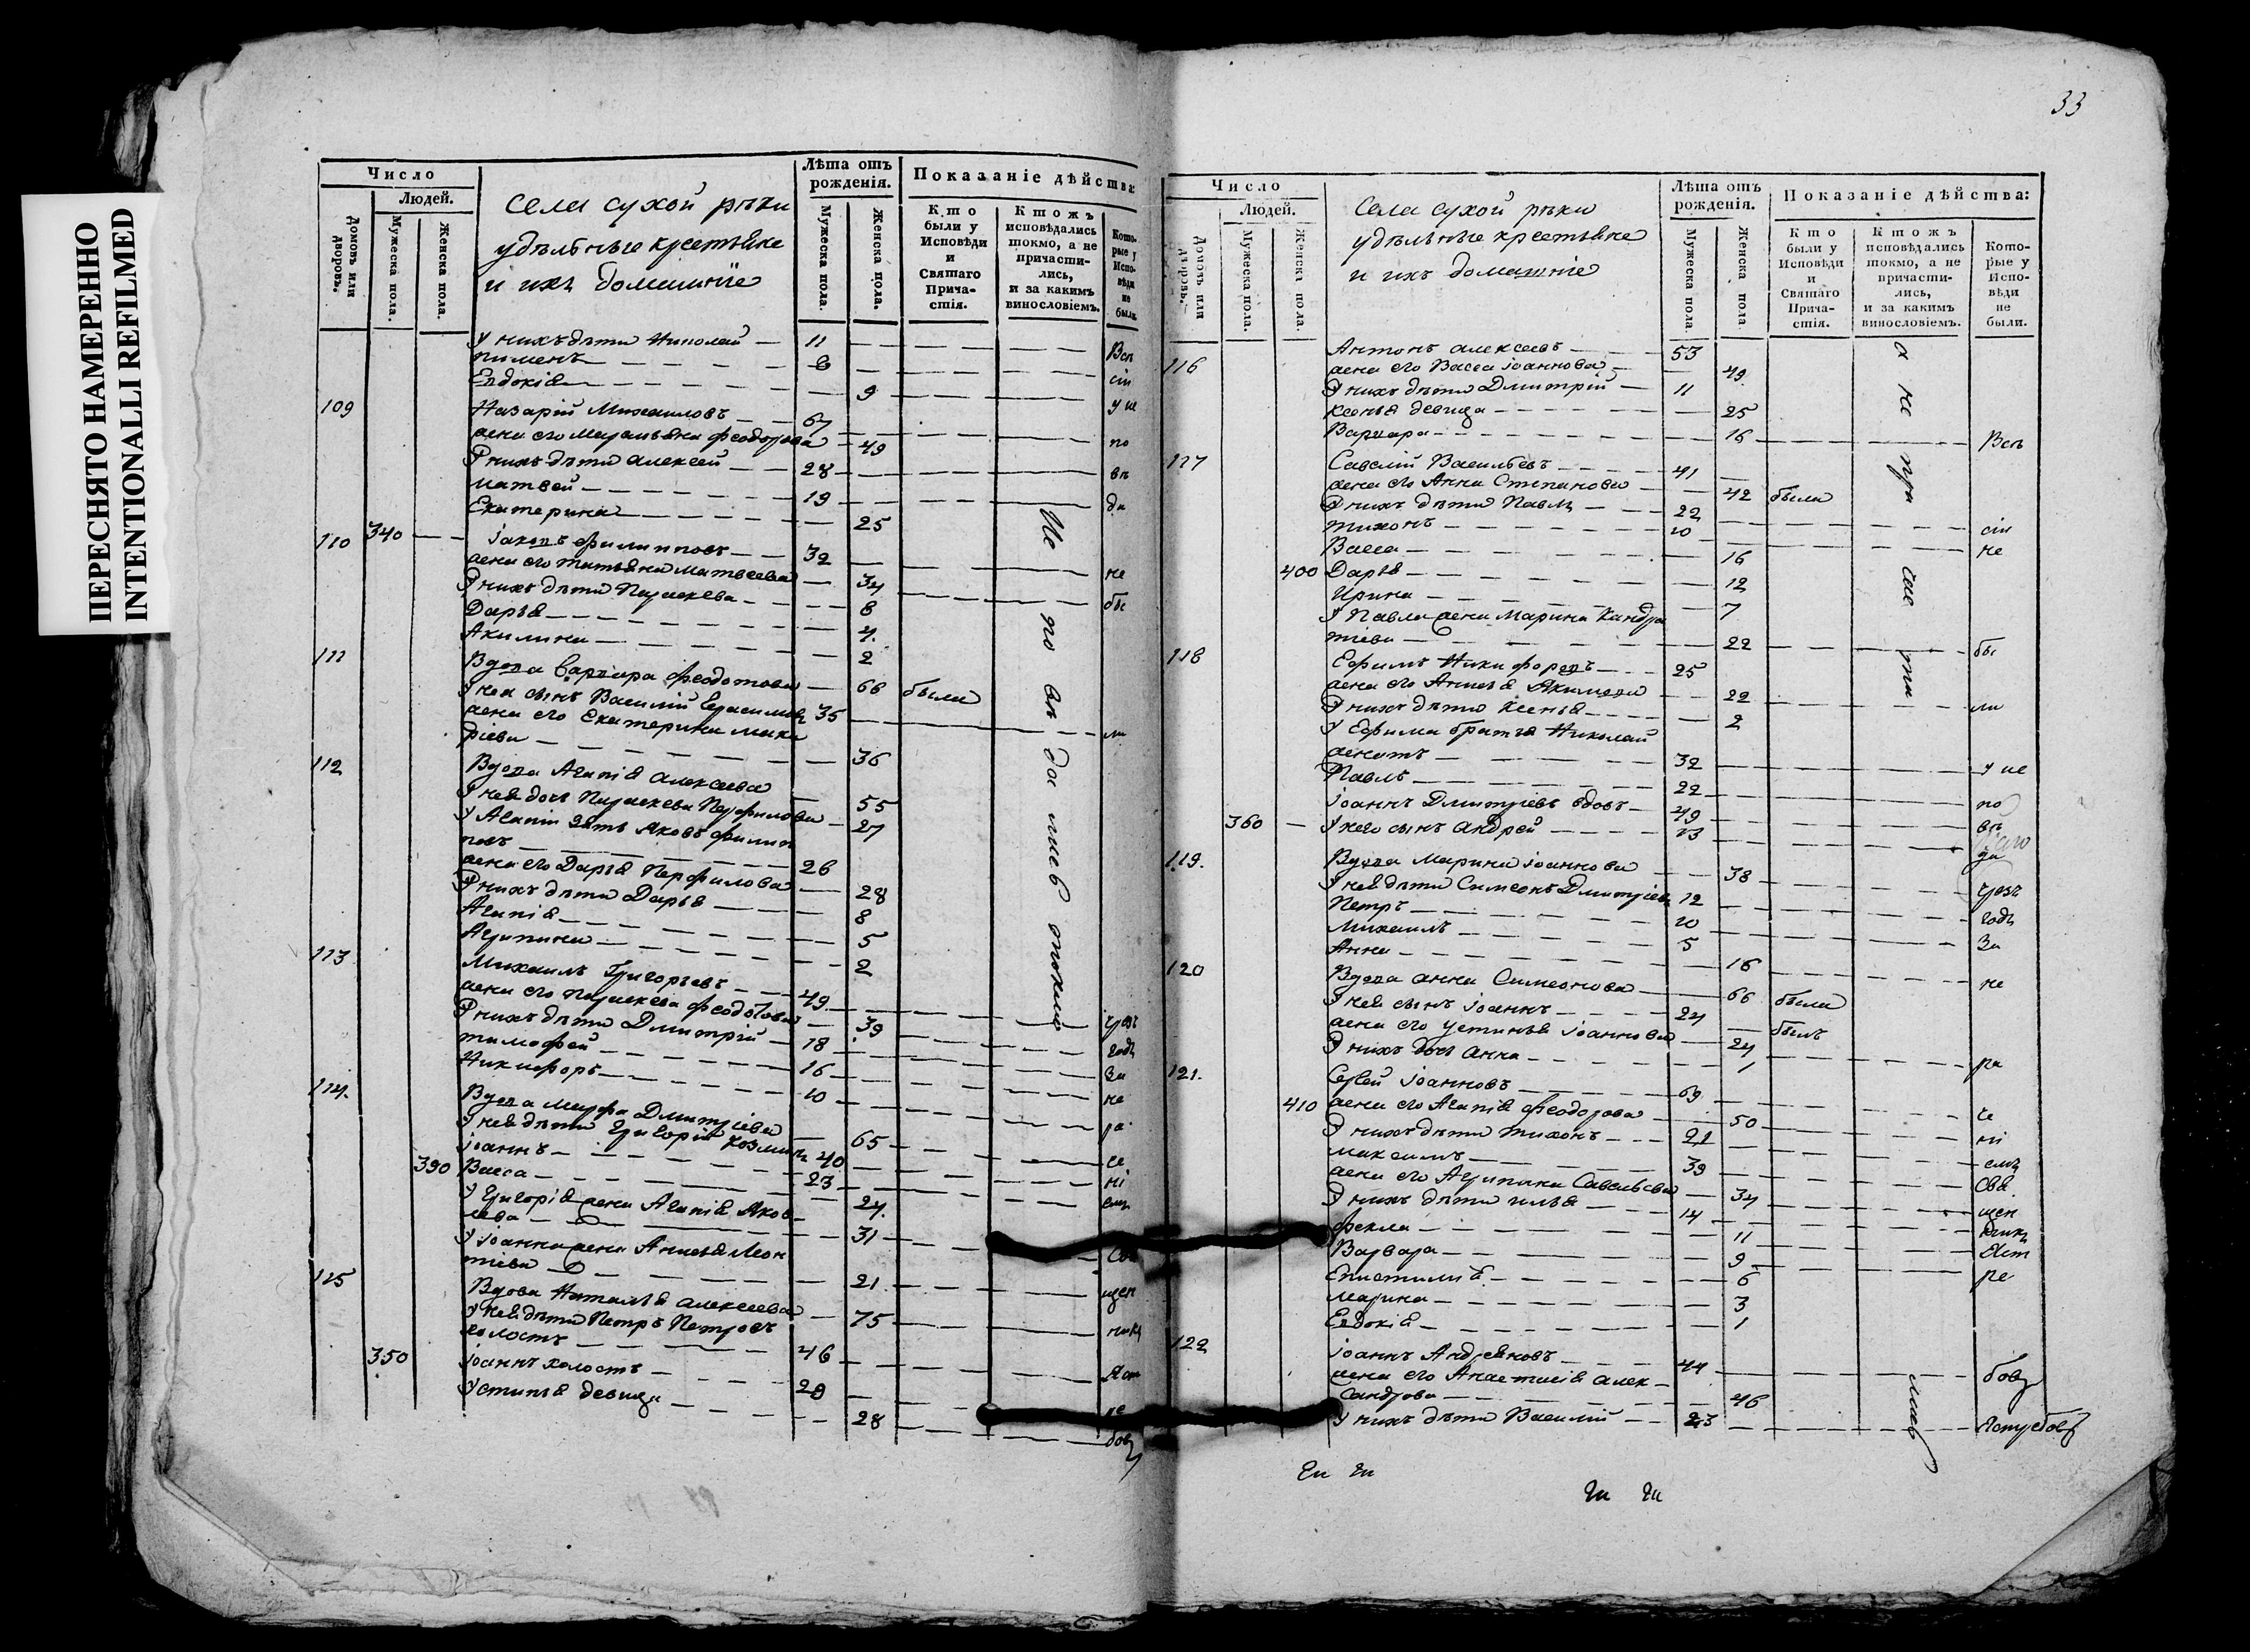 ПЕРЕСНЯТО НАМЕРЕННО
INTENTIONALLI REFILMED
Число
Людей.
Домовъ или дворовъ.
Мужеска пола.
Женска пола.
Села сухой рѣки
удѣльные крестьяне
и ихъ домашніе
Лѣта отъ рожденія.
Мужеска пола.
Женска пола.
Показаніе дѣйства:
Кто были у Исповѣди и Святаго Причастія.
Ктожъ исповѣдались токмо, а не причастились, и за какимъ винословіемъ.
Которые у Исповѣди не были.
У нихъ дѣти Николай 11
Пименъ 6
Евдокія 9
109 Назарій Михаиловъ 67
жена его Мареміяна Феодорова 49
У нихъ дѣти Алексей 28
Матвей 19
Екатерина 25
110 340 Іаковъ Филипповъ 32
жена его Татьяна Матвеева 34
У нихъ дѣти Параскева 8
Дарья 4
Акилина 2
111 Вдова Варвара Феодотова 66 была
У нея сынъ Василій Герасимовъ 35
жена его Екатерина Мака
ріева 36
112 Вдова Агапія Алексеева 55
У нея дочь Параскева Перфилова 27
У Агапіи зять Яковъ Филип
повъ 26
жена его Дарья Перфилова 28
У нихъ дѣти Дарья 8
Агапія 5
Агрипина 2
113 Михаилъ Григорьевъ 49
жена его Параскева Феодотова 39
У нихъ дѣти Дмитрій 18
Тимофей 16
Никифоръ 10
114. Вдова Марфа Дмитріева 65
У нея дѣти Григорій Козминъ 40
Іоаннъ 23
390 Васса 24
У Григорія жена Агапія Яков
лева 31
У Іоанна жена Анисья Леон
тіева 21
115 Вдова Наталья Алексеева 75
У нея дѣти Петръ Петровъ
холостъ 46
350 Іоаннъ холостъ 29
Устинья девица 28
Не по вѣ да лись токмо
Всѣ
сіи
у ис
по
вѣ
ди
не
бы
ли
чрезъ
годъ
за
не
ра
че
ні
емъ
Свя
щен
никъ
Яст
ре
бовъ
33
Число
Людей.
Домовъ или дворовъ.
Мужеска пола.
Женска пола.
Села сухой рѣки
удѣльные крестьяне
и ихъ домашніе
Лѣта отъ рожденія.
Мужеска пола
Женска пола
Показаніе дѣйства:
Кто были у Исповѣди и Святаго Причастія.
Ктожъ исповѣдались токмо, а не причастились, и за какимъ винословіемъ.
Которые у Исповѣди не были.
116 Антонъ Алексеевъ 53
жена его Васса Іоаннова 49
У нихъ дѣти Дмитрій 11
Ксенья девица 25
Варвара 16
117 Савелій Васильевъ 41
жена его Анна Степанова 42 была
У нихъ дѣти Павлъ 22
Тихонъ 10
Васса 16
400 Дарья 12
Ирина 7
У Павла жена Марина Кандра
тіева 22
118 Ефимъ Никифоровъ 25
жена его Анисья Якимова 22
У нихъ дѣти Ксенья 2
У Ефима братья Николай
женатъ 32
Павлъ 22
Іоаннъ Дмитріевъ вдовъ 49
360 У него сынъ Андрей 13
119. Вдова Марина Іоаннова 38
У нея дѣти Симеонъ Дмитріевъ 12
Петръ 10
Михаилъ 5
Анна 16
120 Вдова Анна Симеонова 66 была
У нея сынъ Іоаннъ 24 былъ
жена его Устинья Іоаннова 24
У нихъ дочь Анна 1
121. Сергей Іоанновъ 69
410 жена его Агапія Феодорова 50
У нихъ дѣти Тихонъ 21
Максимъ 39
жена его Агрипина Савельева 34
У нихъ дѣти Илья 14
Фекла 11
Варвара 9
Епистимія 6
Марина 3
Евдокія 1
122 Іоаннъ Андреяновъ 44
жена его Анастасія Алек
сандрова 46
У нихъ дѣти Василій 23
а не при час ти лись
Всѣ
сіи
не
бы
ли
у ис
по
вѣ
ди
чрезъ
годъ
за
не
ра
че
ні
емъ
Свя
щен
никъ
Яст
ре
бовъ
Ястребовъ